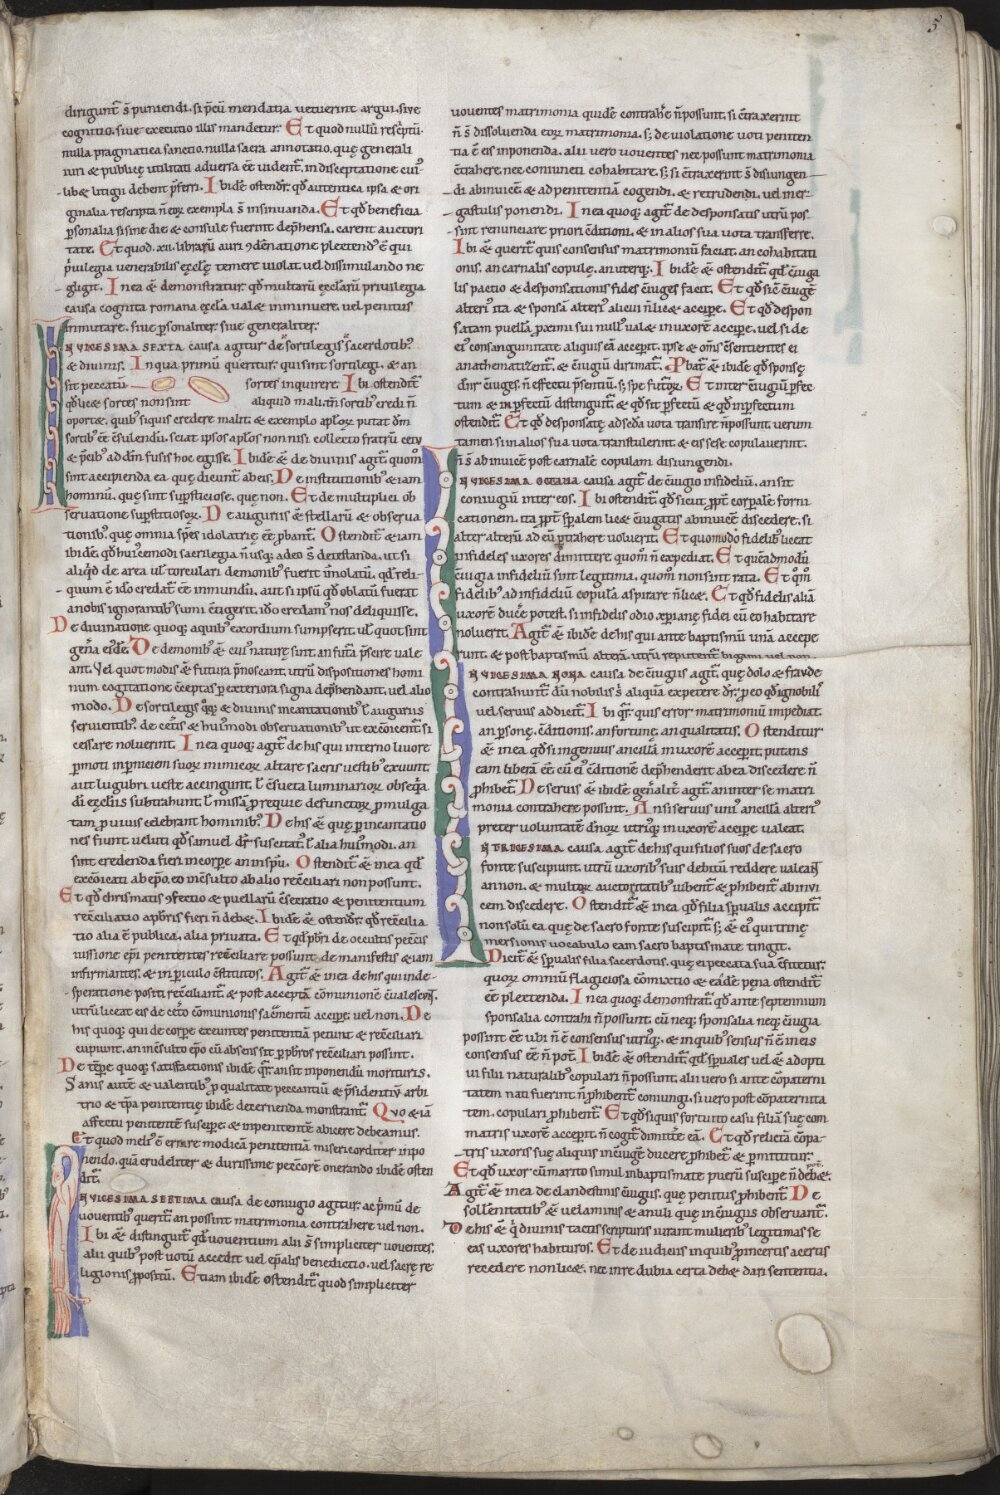 5
dirigunt̄ s̄ puniendi. si p̄cū mendatia vetuerint argui. sive
cognitio. siue executio illis mandetur. Et quod nullū rescriptū.
nulla pragmatica sanctio. nulla sacra annotatio. quę generali
iuri & publicę utilitati adversa ēē videnť. in disceptatione cui
libet litigii debent p̄ferri. Ibidē ostendit̄. qđ autentica ipsa. & ori
ginalia rescripta n̄ eoꝝ exempla s̄ insinuanda. Et qđ beneficia
ꝑsonalia si sine die & consule fuerint dephensa. carent auctori
tate. Et quod .xii. librarū auri ꝯdēnatione plectendꝰ ē qui
privilegia venerabilis ęcclę temere violat. vel dissimulando ne
gligit. In ea ē demonstratur. qđ multarū ęcclarū privilegia
causa cognita romana ęccla valet inminuere. vel penitus
inmutare. siue ꝑsonaliter. siue generaliter.
IN VICESIMA SEXTA causa agitur de sortilegis sacerdotibꝰ
& divinis. In qua primū queritur. qui sint sortilegi. & an
sit peccatū sortes inquirere. Ibi ostendit̄
qđ licet sortes non sint aliquid mali. tn̄ sortibꝰ credi n̄
oportet. quibꝰ siquis credere malit. & exemplo aploꝝ putat dm̄
sortibꝰ ēē cōsulendū. sciat ipsos aplos non nisi collecto fratrū cetu
& p̄cibꝰ ad dm̄ fusis hoc egisse. Ibidē & de divinis agit̄ quom̄
sint accipienda ea. quę dicunt̄ ab eis. De institutionibꝰ etiam
hominū. quę sint supstitiose. quę non. Et de multiplici ob
servatione supstitiosoꝝ. De auguriis & stellarū & observa
tionibꝰ. que omnia spēs idolatrię ēē ꝓbant̄. Ostendit̄ etiam
ibidē. qđ huicemodi sacrilegia n̄ usqꝫ adeo s̄ detestanda. ut si
aliqđ de area ul̄ torculari demonibꝰ fuerit īmolatū. qđ reli
quum ē idō credat̄ ēē inmundū. aut si ipsū qđ oblatū fuerat
a nobis ignorantibꝰ sumi cōtigerit. idō credamꝰ nos deliquisse.
De divinatione quoqꝫ. a quibꝰ exordium sumpserit. ul̄ quot sint
genera eiꝰdē. De demonibꝰ & cuiꝰ naturę sunt. an futura p̄scire vale
ant. Vel quot modis & futura p̄noscant. utrū dispositiones homi
num cogitatione cōceptas ꝑ exteriora signa dep̄hendant. vel alio
modo. De sortilegis quoqꝫ & divinis incantationibꝰ ł auguriis
servientibꝰ. de cetis & huiꝰmodi observationibꝰ ut excōicent̄. si
cessare noluerint. In ea quoqꝫ agit̄ de his qui interno livore
ꝑmoti in ꝑniciem suoꝝ inimicoꝝ altare sacris vestibꝰ exuunt.
aut lugubri veste accingunt. ł cōsueta luminarioꝝ obseqa
dī ęcclesiis subtrahunt. ł missā ꝓ requie defunctoꝝ ꝓmulga
tam ꝓ vivis celebrant hominibꝰ. De his ē quę ꝑ incantatio
nes fiunt. veluti qđ samuel dr̄ suscitatꝰ. ł alia huiꝰmodi. an
sint credenda fieri in corpore an in spū. Ostendit̄ & in ea qđ
excōicati ab ep̄o. eo incōsulto ab alio recōciliari non possunt.
Et qđ chrismatis ꝯfectio & puellarū cōsecratio & penitentium
recōciliatio a pbris fieri n̄ debet. Ibidē & ostendit̄. qđ recōcilia
tio alia ē publica. alia privata. Et qđ pbri de occultis peccatis
iussione ep̄i penitentes recōciliare possunt. de manifestis etiam
infirmantes. & in ꝑiculo cōstitutos. Agit̄ & in ea de his qui in de
speratione positi recōciliant̄. & post acceptā cōmunionē cōvalescunt.
utrū liceat eis de cetero cōmunionis sacm̄entū accipere. vel non. De
his quoqꝫ. qui de corpore exeuntes penitentiā petunt & recōciliari
cupiunt. an incōsulto ep̄o cū absens sit ꝑ pbros recōciliari possint.
De tempore quoqꝫ satisfactionis ibidē quer̄. an sit inponendū morituris.
Sanis autē & valentibꝰ ꝑ qualitate peccantiū & p̄sidentiū arbi
trio & tpa penitentię ibidē decernenda monstrant̄. Quo etiā
affectu penitentē suscipere & inpenitentē abicere debeamus.
Et quod meliꝰ ē errare modicā penitentiā misericorditer inpo
nendo. quā crudeliter & durissime peccatorē onerando ibidē osten
dit̄.
IN VICESIMA SEPTIMA causa de coniugio agitur. ac primū de
voventibꝰ querit̄ an possint matrimonia contrahere vel non.
Ibi & distinguit̄ qđ voventium alii s̄ simpliciter voventes.
alii quibꝰ post votū accedit vel ep̄alis benedictio. vel sacrę re
ligionis ꝓpositū. Etiam ibidē ostendit̄ quod simpliciter
voventes matrimonia quidē contrahere n̄ possunt. si cōtraxerint
n̄ s̄ dissolvenda eoꝝ matrimonia. sꝫ de violatione voti peniten
tia ē eis inponenda. alii vero voventes nec possunt matrimonia
cōtrahere. nec coniuncti cohabitare. sꝫ si cōtraxerint s̄ disiungen
di abinvicē & ad penitentiā cogendi. & retrudendi. vel in er
gastulis ponendi. In ea quoqꝫ agit̄ de desponsatis utrū pos
sint renunciare priori cōditioni. & in alios sua vota transferre.
Ibi & querit̄ quis consensus matrimoniū faciat. an cohabitati
onis. an carnalis copulę. an uterqꝫ. Ibidē & ostendit̄ qđ cōiuga
lis pactio & desponsationis fides cōiuges facit. Et qđ sic cōiugē
alteriꝰ ita & sponsā alteriꝰ alicui n̄ licet accipere. Et qđ despon
satam puellā ꝓximi sui nullꝰ valet in uxorē accipere. vel si de
eiꝰ consanguinitate aliquis eā accepit. ipse & om̄s cōsentientes ei
anathematizent̄. & cōiugiū dirimat̄. Probat̄ & ibidē qđ sponsę
dn̄r cōiuges. n̄ effectu p̄sentiū. sꝫ spe futuroꝝ. Et inter cōiugiū ꝑfec
tum & inꝑfectū distinguit̄. & qđ sit ꝑfectū & qđ inꝑfectum
ostendit̄. Et qđ desponsatę ad secda vota transire n̄ possunt. verum
tamen si in alios sua vota transtulerint. & eis sese copulaverint.
n̄ s̄ abinvicē post carnalē copulam disiungendi.
IN VICESIMA OCTAVA causa agit̄ de cōiugio infidelium. an sit
coniugium inter eos. Ibi ostendit̄ qđ sicut ꝓpt̄ corporale forni
cationem. ita ꝓpt̄ sp̄alem licet cōiugatis abinvicē discedere. si
alter alterū ad eū ꝑtrahere voluerit. Et quomodo fidelibꝰ liceat
infideles uxores dimittere. quom̄ n̄ expediat. Et quēadmodū
cōiugia infideliū sint legitima. quom̄ non sint rata. Et qm̄
fidelibꝰ ad infideliū copula aspirare n̄ licet. Et qđ fidelis aliā
uxorē ducere potest. si infidelis odio xp̄ianę fidei cū eo habitare
noluerit. Agit̄ & ibidē de his qui ante baptismū unā accepe
runt. & post baptismū alterā. utrū reputent̄ bigami vel non.
IN VICESIMA NONA causa de cōiugiis agit̄. quę dolo & fraude
contrahunt̄. dū nobilis s̄ aliqua expetere dr̄. ꝓ eo qđ ignobilis
vel servus addicit̄. Ibi qr̄ quis error matrimoniū impediat.
an ꝑsonę. cōditionis. an fortunę. an qualitatis. Ostenditur
& in ea qđ si ingenuus ancillā in uxorē accepit. putans
eam liberā ēē. cū eiꝰ cōditionē dep̄henderit ab ea discedere n̄
ꝓhibet̄. De servis & ibidē gen̄alit̄ agit̄. an inter se matri
monia contrahere possint. An si servus uniꝰ ancillā alteriꝰ
preter voluntatē dn̄oꝝ utriꝰqꝫ in uxorē accipe valeat.
IN TRICESIMA causa agit̄ de his qui filios suos de sacro
fonte suscipiunt. utrū uxoribꝰ suis debitū reddere valeant
an non. & multoꝝ auctoritatibꝰ iubent̄ & ꝓhibent̄ abinvi
cem discedere. Ostendit̄ & in ea qđ filia sp̄ualis accipit̄.
non solū ea quę de sacro fonte suscipit̄. sꝫ & eiꝰ qui trinę
mersionis vocabulo eam sacro baptismate tingit.
Dicit̄ & sp̄ualis filia sacerdotis. quę ei peccata sua cōfitetur.
quoꝝ omniū flagiciosa cōmixtio & eadē pęna ostendit̄
ēē plectenda. In ea quoqꝫ demonstrat̄. qđ ante septennium
sponsalia contrahi n̄ possunt. cū neqꝫ sponsalia neqꝫ cōiugia
possint ēē ubi n̄ ē consensus utriꝰqꝫ. & in quibꝰ sensus n̄ ē in eis
consensus ēē n̄ pot̄. Ibidē & ostendit̄ qđ sp̄uales vel & adopti
vi filii naturalibꝰ copulari n̄ possunt. alii vero si ante cōpaterni
tatem nati fuerint n̄ ꝓhibent̄ coniungi. si vero post cōpaternita
tem. copulari ꝓhibent̄. Et qđ siquis fortuito casu filiā suę com
matris uxorē accepit. n̄ cogit̄ dimittere eā. Et qđ relictā cōpa
tris uxoris suę aliquis in cōiugē ducere ꝓhibet̄ & ꝑmittitur.
Et qđ uxor cū marito simul in baptismate puerū suscipe n̄ debet.
Agit̄ & in ea de clandestinis cōiugiis. que penitus ꝓhibent̄. De
sollēnitatibꝰ & velaminis & anuli quę in cōiugiis observant̄.
De his & qui divinis tactis scripturis iurant mulieribꝰ legitimas se
eas uxores habituros. Et de iudiciis in quibꝰ ꝓ incertis a certis
recedere non licet. nec in re dubia certa debet dari sententia.